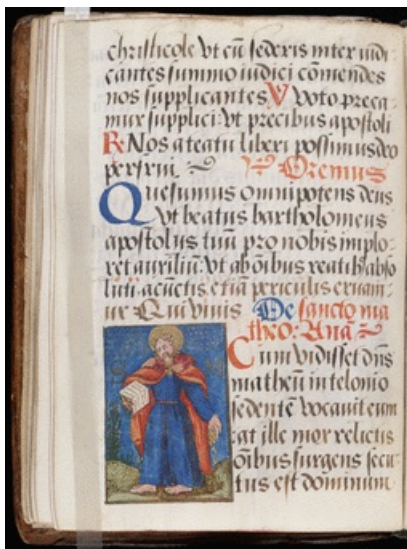 christicole vt cū sederis inter iudi
cantes summo iudici cōmendes
nos supplicantes V Voto preca
mur supplici: vt precibus apostoli
R Nos a reatu liberi possimus deo
perfrui Oremus
Quesumus omnipotens deus
vt beatus bartholomeus
apostolus tuus pro nobis implo
ret auxiliū: vt ab oībus reatib abso
luti: a cūctis etiā periculis eruam
ur Qui vivis De sancto ma
theo: Anā
Cum vidisset dn̄s
matheū in telonio
sedentē vocauit eum
at ille mox relictis
oībus surgens secu
tus est dominum